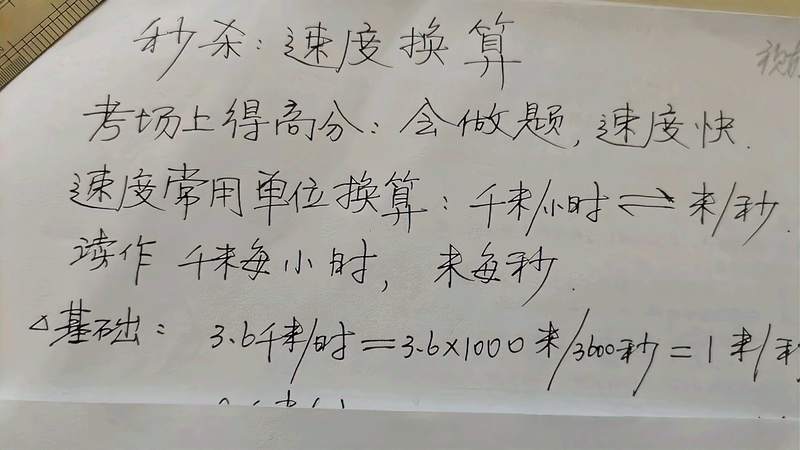 秒杀：速度换算
考场上得高分：会做题，速度快．
速度常用单位换算：千米/小时⇌米/秒．
读作 千米每小时，米每秒．
△基础：3.6千米/时=3.6×1000米/3600秒=1米/秒